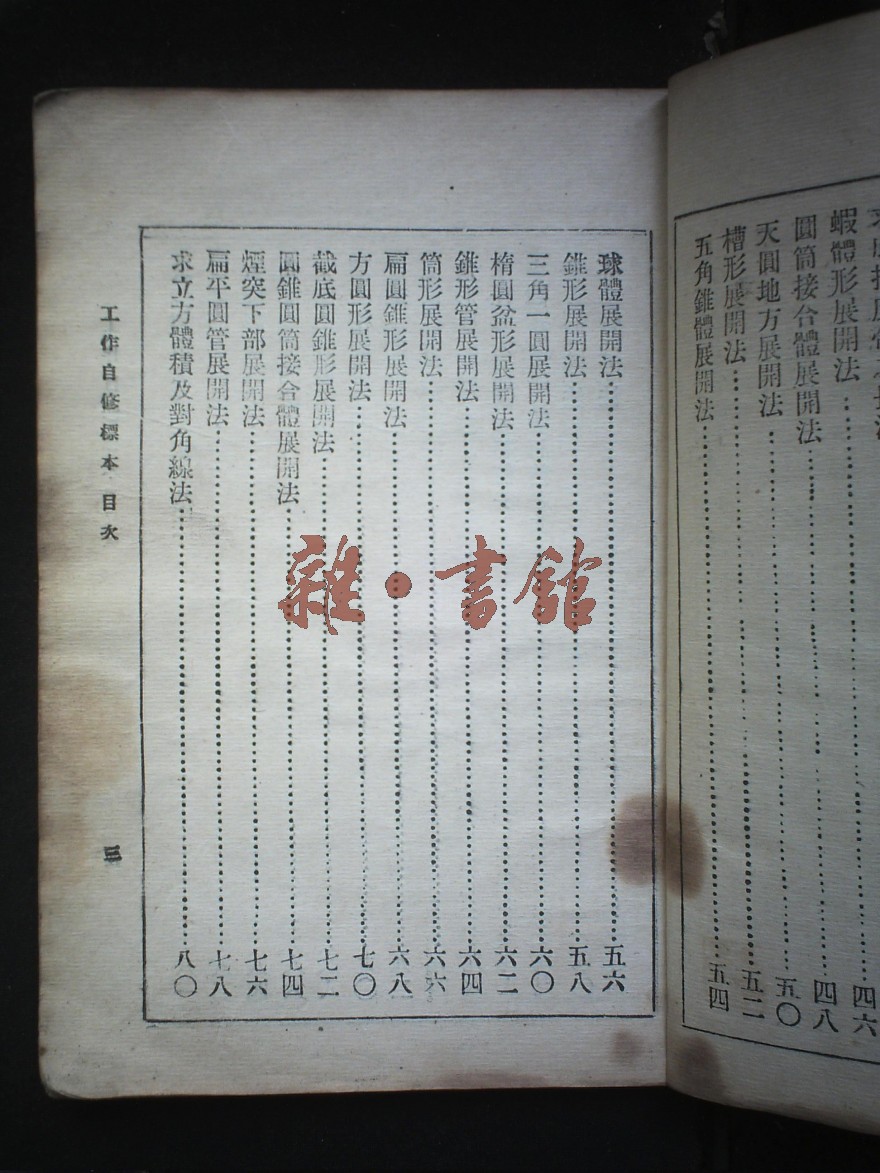 蝦體形展開法……四六
圓筒接合體展開法……四八
天圓地方展開法……五〇
槽形展開法……五二
五角錐體展開法……五四
球體展開法……五六
錐形展開法……五八
三角一圓展開法……六〇
楕圓盆形展開法……六二
錐形管展開法……六四
筒形展開法……六六
扁圓錐形展開法……六八
方圓形展開法……七〇
截底圓錐形展開法……七二
圓錐圓筒接合體展開法……七四
煙突下部展開法……七六
扁平圓管展開法……七八
求立方體積及對角線法……八〇
工作自修標本 目次
三
雜·書館